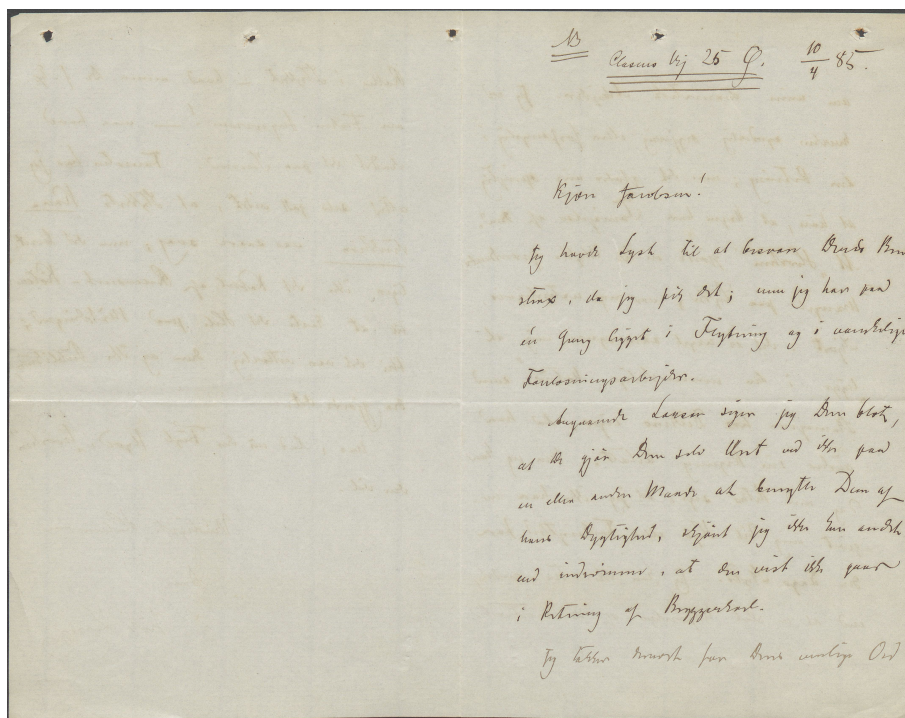 NB
Clasens Vej 25 Ø. 10/4 85.
Kjære Jacobsen!
Jeg havde Lyst til at besvare Deres Brev
strax, da jeg fik det; men jeg har paa
én Gang ligget i Flytning og i vanskelige
Forelæsningsarbejder.
Angaaende Larsen siger jeg Dem blot,
at De gjør Dem selv Uret ved ikke paa
en eller anden Maade at benytte Dem af
hans Dygtighed, skjønt jeg ikke kan andet
end indrømme, at den vist ikke gaar
i Retning af Bryggerkarl.
Jeg takker Dem for Deres venlige Ord